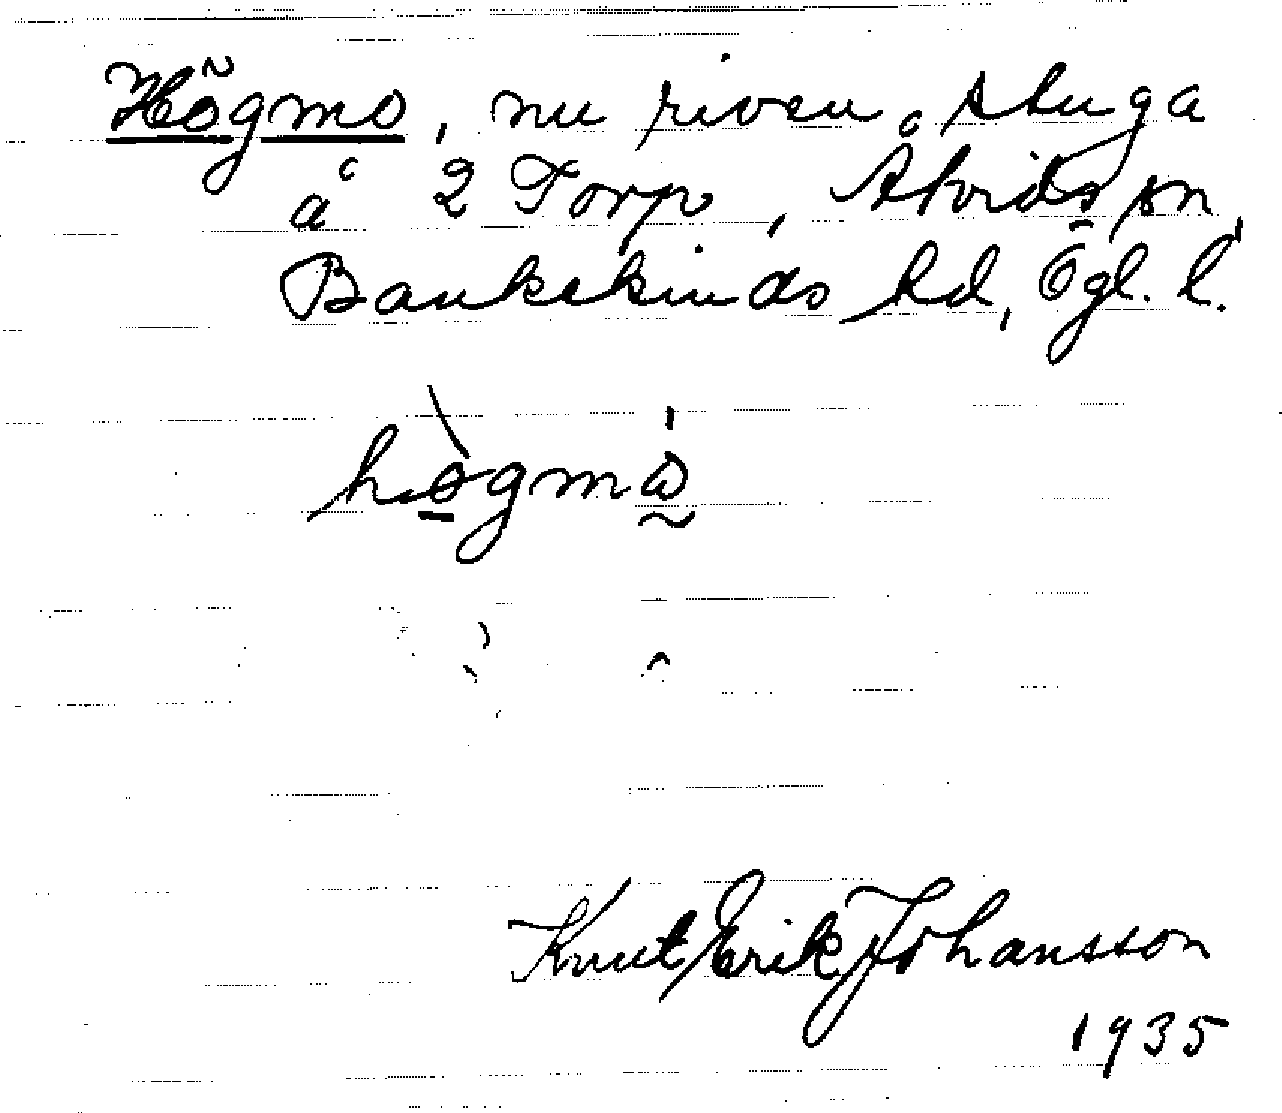 Högmo, nu riven stuga
å 2 Torp, Åtvids sn,
Bankekinds hd, Ögl. l.
hògmå
Knut Erik Johansson
1935